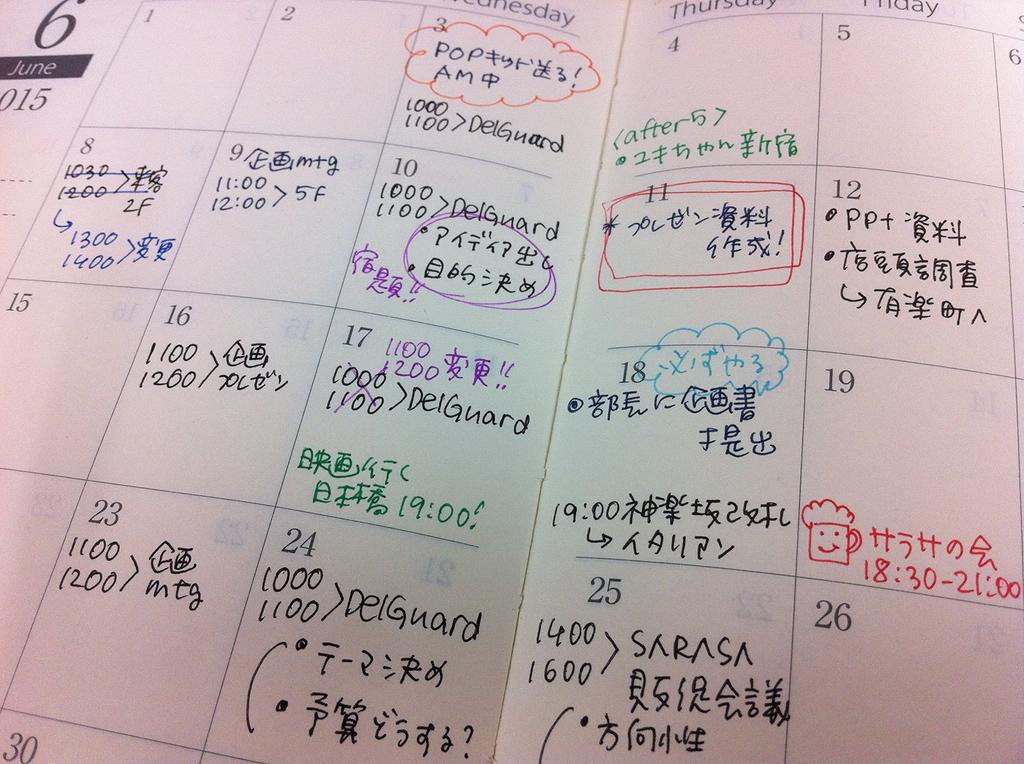 6
June
015
Wednesday
Thursday
Friday
1
2
3
POPキット送る!
AM中
1000
1100 > DelGuard
4
<after5>
・ユキちゃん新宿
5
6
8
1030
1200 > 来客
2F
↳ 1300
1400 > 変更
9
企画mtg
11:00
12:00 > 5F
10
1000
1100 > DelGuard
・アイディア出し
・目的決め
宿題!!
11
*プレゼン資料
作成!
12
・PPt 資料
・店頭調査
↳有楽町へ
15
16
1100
1200 > 企画
プレゼン
17
1100
1200 変更!!
1000
1100 > DelGuard
映画行く
日本橋 19:00!
18
必ずやる
・部長に企画書
提出
19:00 神楽坂
↳イタリアン
19
サラサの会
18:30-21:00
23
1100
1200 > 企画
mtg
24
1000
1100 > DelGuard
・テーマ決め
・予算どうする?
25
1400
1600 > SARASA
販促会議
・方向性
26
30